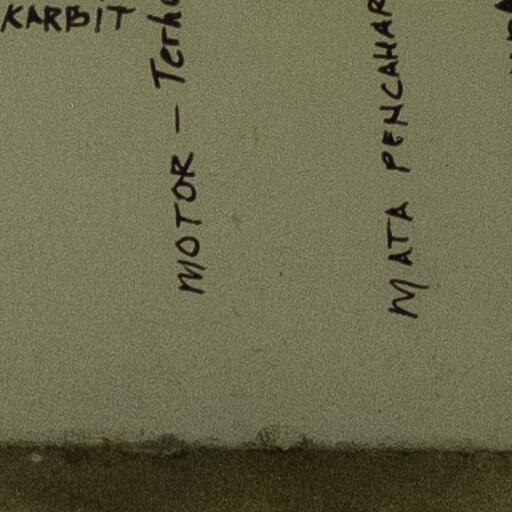 KARBIT
MOTOR - Terh
MATA PENCAHAR